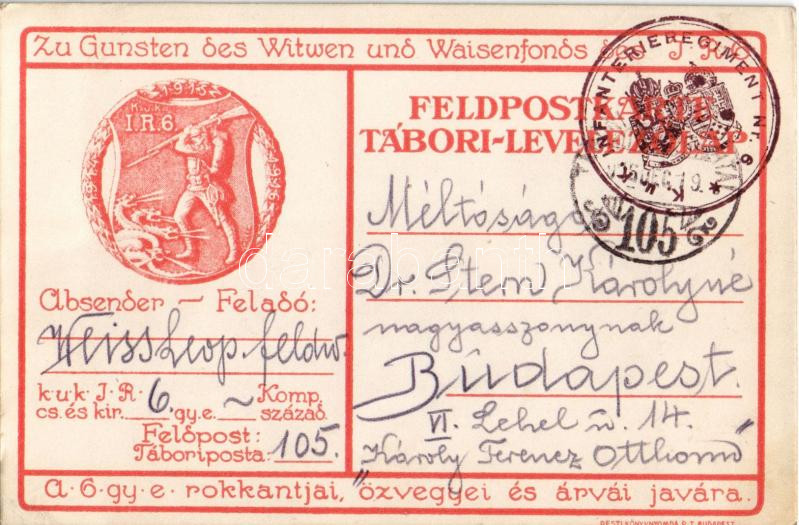 Zu Gunsten des Witwen und Waisenfonds des I.R.6
1915
K.u.K.
I.R.6
1914 1916
FELDPOSTKARTE
TÁBORI-LEVELEZŐLAP
K.u.K. INFANTERIEREGIMENT Nr. 6
105
Méltóságos
Dr. Stern Károlyné
nagyasszonynak
Budapest.
VI. Lehel u. 14.
"Károly Ferencz Otthona"
Absender – Feladó:
Weiss Leop. feldw.
k·u·k· I·R· 6. Komp.
cs. és kir. gy. e. ~ század
Feldpost:
Táboriposta: 105.
A· 6· gy· e· rokkantjai, özvegyei és árvái javára.
PESTI KÖNYVNYOMDA R.T. BUDAPEST
darabanth